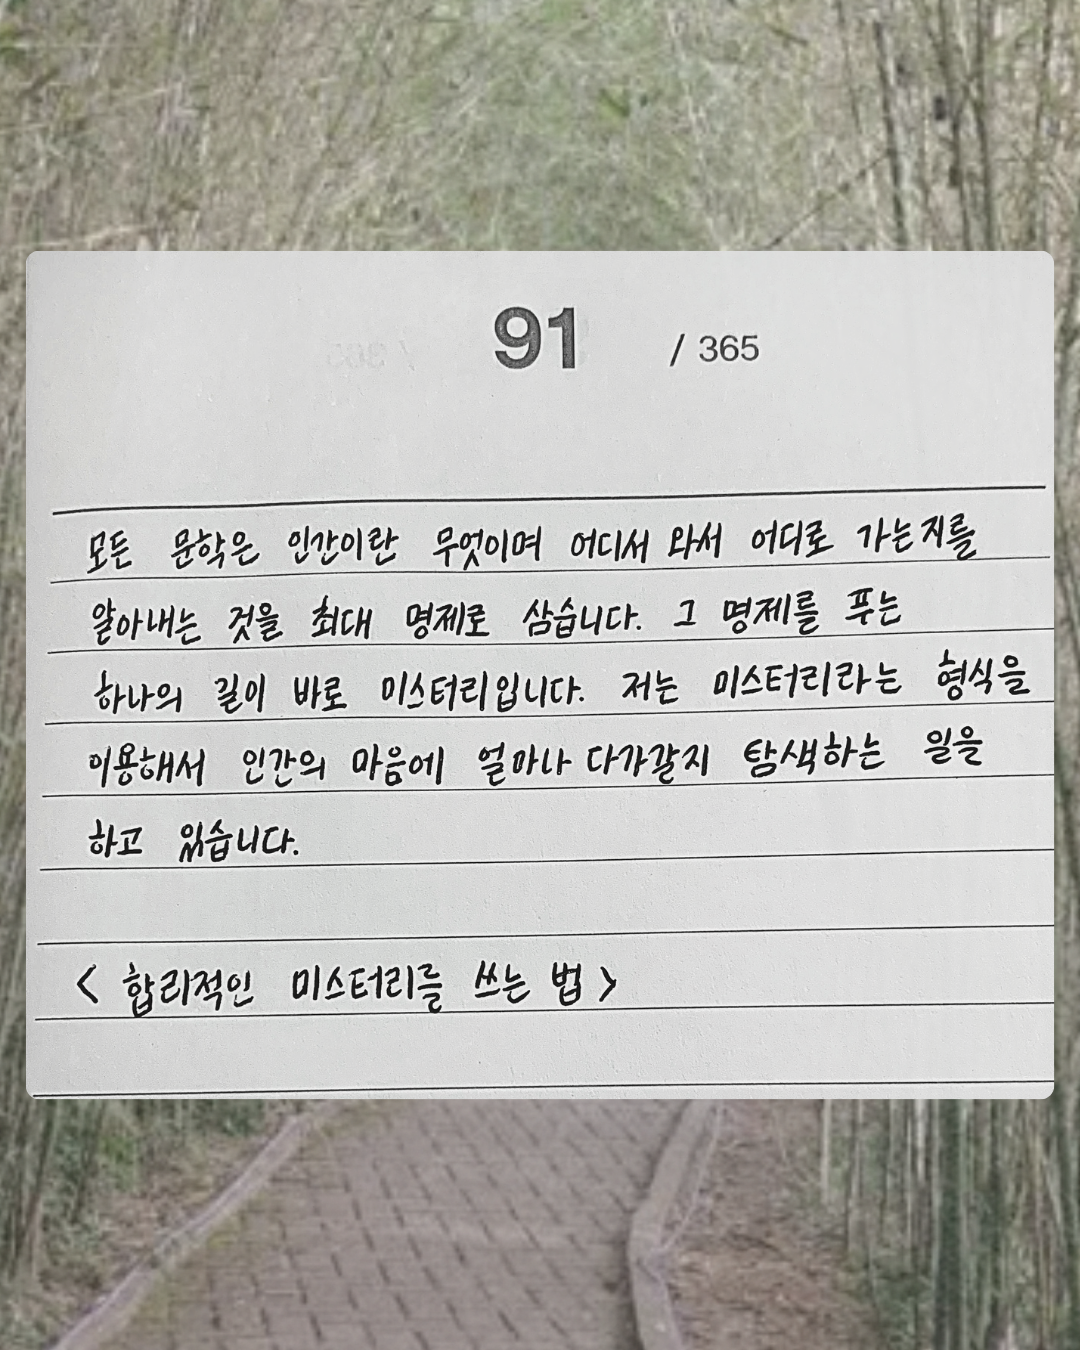 91 / 365
모든 문학은 인간이란 무엇이며 어디서 와서 어디로 가는지를
알아내는 것을 최대 명제로 삼습니다. 그 명제를 푸는
하나의 길이 바로 미스터리입니다. 저는 미스터리라는 형식을
이용해서 인간의 마음에 얼마나 다가갈지 탐색하는 일을
하고 있습니다.
< 합리적인 미스터리를 쓰는 법 >